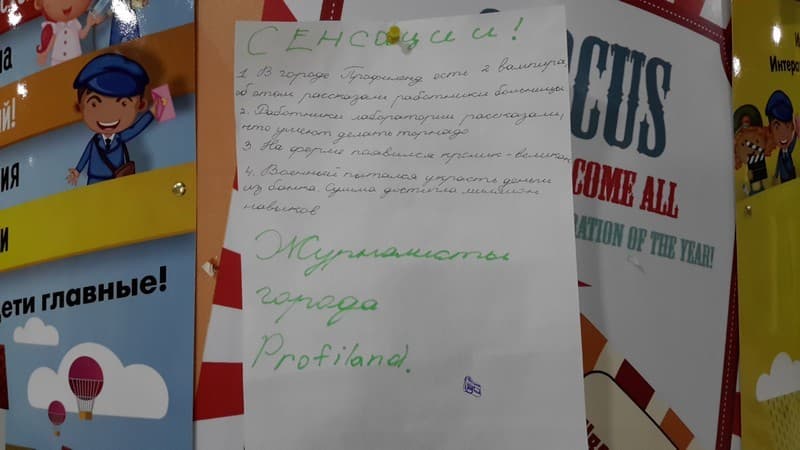 СЕНСАЦИИ!
1. В городе Профиленд есть 2 вампира,
об этом рассказали работники больницы
2. Работники лаборатории рассказали,
что умеют делать торнадо
3. На ферме появился кролик-великан
4. Военный пытался украсть деньги
из банка. Сумма достигла миллион
навыков
Журналисты
города
Profiland.
ай!
ия
и
дети главные!
CUS
COME ALL
RATION OF THE YEAR!
И
Интеро